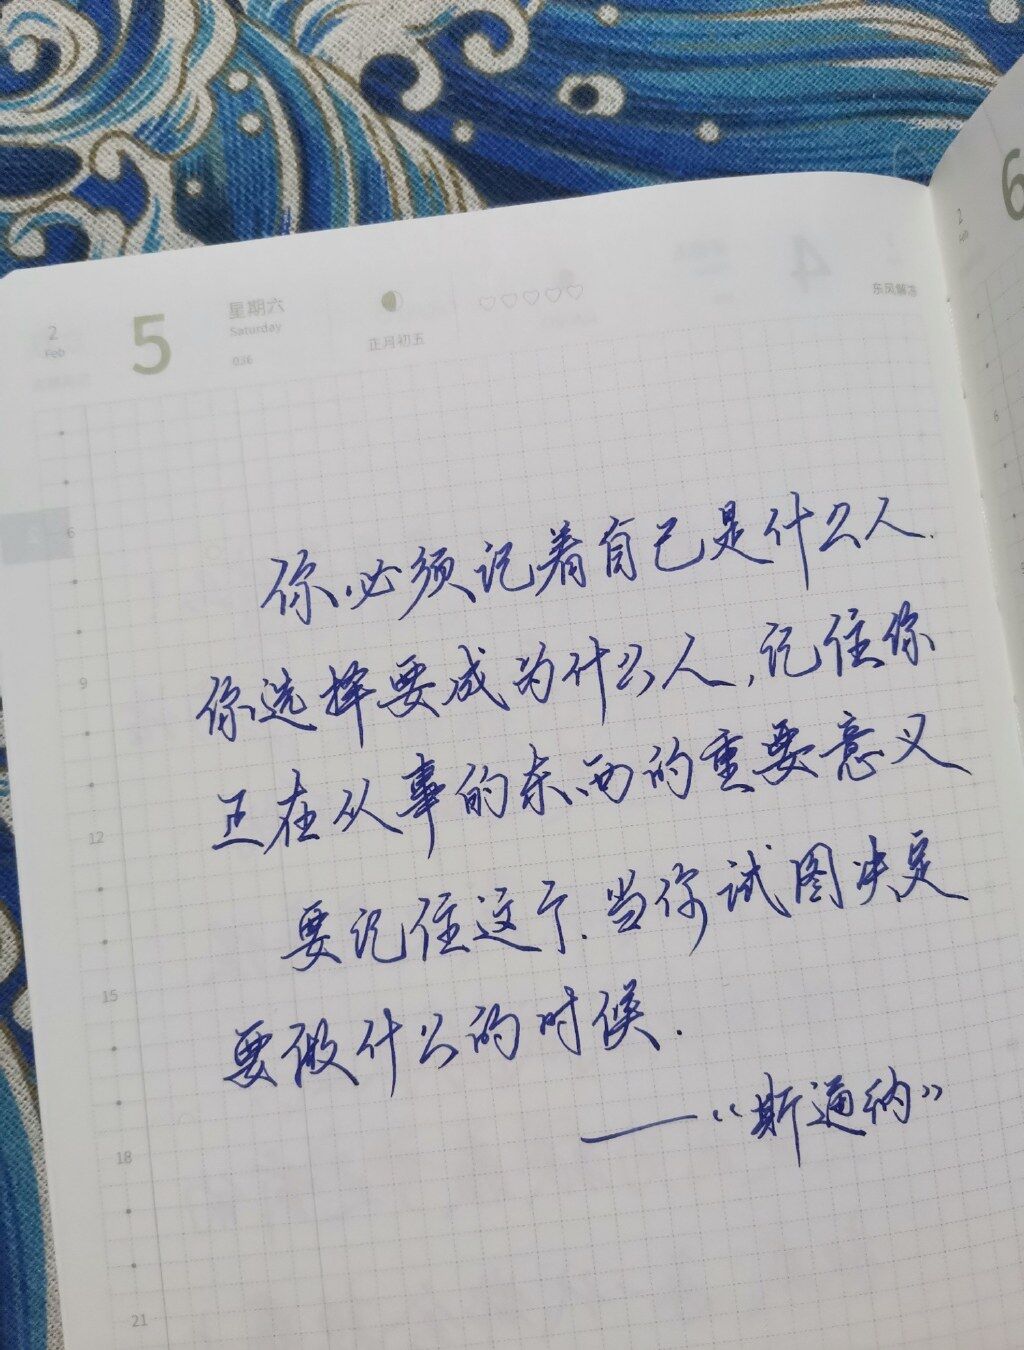 2
Feb
5
星期六
Saturday
036
正月初五
东风解冻
2
Feb
6
6
9
12
15
18
21
6
你必须记着自己是什么人.
你选择要成为什么人,记住你
正在从事的东西的重要意义
要记住这个.当你试图决定
要做什么的时候.
——“斯通纳”